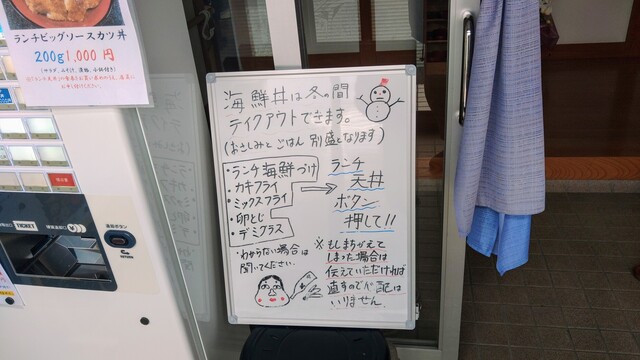 ランチビッグソースカツ丼
200g 1,000円
海鮮丼は冬の間
テイクアウトできます。
(おさしみとごはん 別盛となります)
・ランチ海鮮づけ
・カキフライ
・ミックスフライ
・卵とじ
・デミグラス
ランチ
天丼
ボタン
押して!!
・わからない場合は
聞いてください。
※もしまちがえて
しまった場合は
伝えていただければ
直すので
記はいりません。
TICKET
RETURN